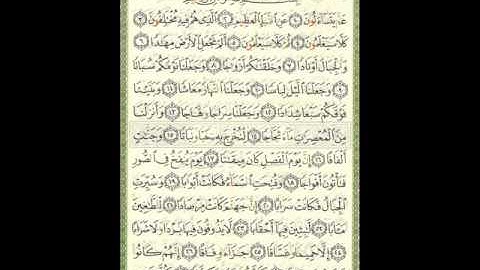 عَمَّ يَتَسَاءَلُونَ ١ عَنِ النَّبَإِ الْعَظِيمِ ٢ الَّذِي هُمْ فِيهِ مُخْتَلِفُونَ ٣
كَلَّا سَيَعْلَمُونَ ٤ ثُمَّ كَلَّا سَيَعْلَمُونَ ٥ أَلَمْ نَجْعَلِ الْأَرْضَ مِهَادًا ٦
وَالْجِبَالَ أَوْتَادًا ٧ وَخَلَقْنَاكُمْ أَزْوَاجًا ٨ وَجَعَلْنَا نَوْمَكُمْ سُبَاتًا
٩ وَجَعَلْنَا اللَّيْلَ لِبَاسًا ١٠ وَجَعَلْنَا النَّهَارَ مَعَاشًا ١١ وَبَنَيْنَا
فَوْقَكُمْ سَبْعًا شِدَادًا ١٢ وَجَعَلْنَا سِرَاجًا وَهَّاجًا ١٣ وَأَنْزَلْنَا
مِنَ الْمُعْصِرَاتِ مَاءً ثَجَّاجًا ١٤ لِنُخْرِجَ بِهِ حَبًّا وَنَبَاتًا ١٥ وَجَنَّاتٍ
أَلْفَافًا ١٦ إِنَّ يَوْمَ الْفَصْلِ كَانَ مِيقَاتًا ١٧ يَوْمَ يُنْفَخُ فِي الصُّورِ
فَتَأْتُونَ أَفْوَاجًا ١٨ وَفُتِحَتِ السَّمَاءُ فَكَانَتْ أَبْوَابًا ١٩ وَسُيِّرَتِ
الْجِبَالُ فَكَانَتْ سَرَابًا ٢٠ إِنَّ جَهَنَّمَ كَانَتْ مِرْصَادًا ٢١ لِلطَّاغِينَ
مَآبًا ٢٢ لَابِثِينَ فِيهَا أَحْقَابًا ٢٣ لَا يَذُوقُونَ فِيهَا بَرْدًا وَلَا شَرَابًا
٢٤ إِلَّا حَمِيمًا وَغَسَّاقًا ٢٥ جَزَاءً وِفَاقًا ٢٦ إِنَّهُمْ كَانُوا